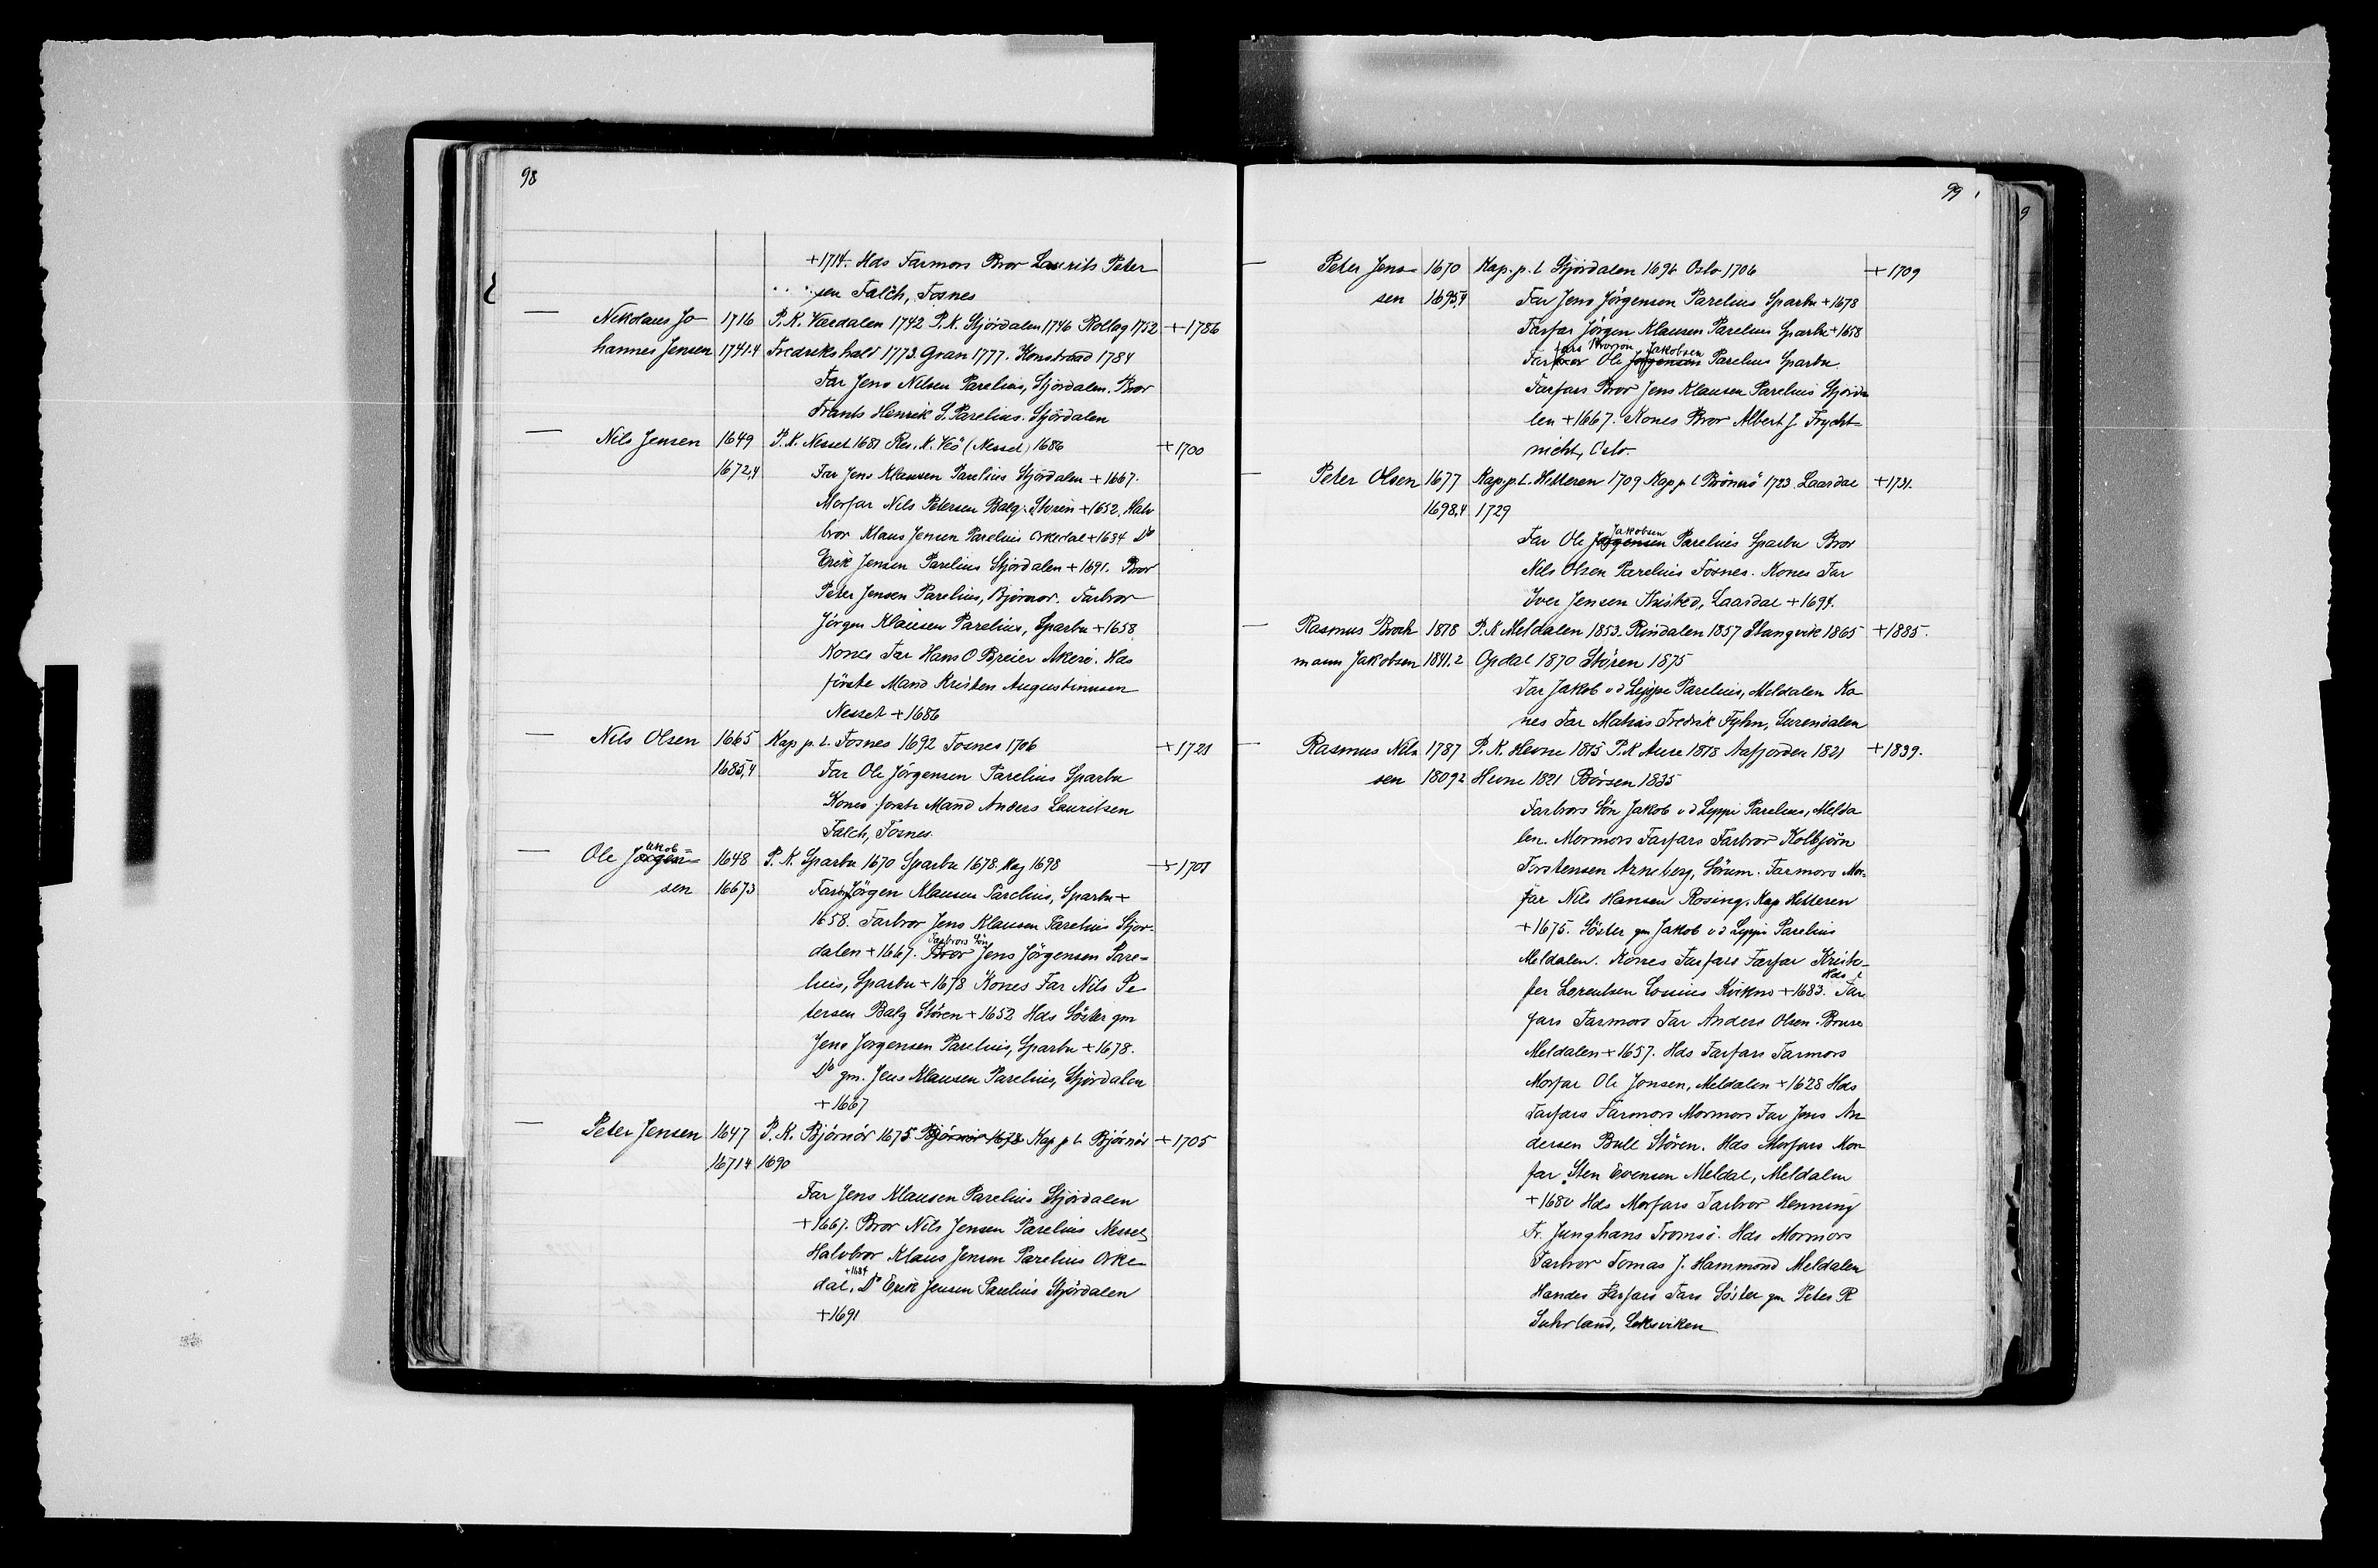 98
+1714. Hds Farmors Bror Laurits Peter
sen Falch, Fosnes
— Nikolaus Jo- 1716 P. K. Værdalen 1742 P. K. Stjördalen 1746 Rollag 1752 +1786
hannes Jensen 1741.4 Fredrikshald 1773. Gran 1777. Konstraad 1784
Far Jens Nilsen Parelius, Stjördalen. Bror
Frants Henrik S. Parelius. Stjördalen
— Nils Jensen 1649 P. K. Nesset 1681 Res. K. Veö (Nesset) 1686 +1700
1672,4 Far Jens Klausen Parelius Stjördalen +1667.
Morfar Nils Petersen Balg. Stören +1652. Halv
bror Klaus Jensen Parelius Orkedal +1684 Do
Erik Jensen Parelius Stjördalen +1691. Bror
Peter Jensen Parelius, Björnör. Farbror
Jörgen Klausen Parelius, Sparbu +1658
Kones Far Hans O Breier Akerö. Hds
förste Mand Kristen Augustinusen
Nesset +1686
— Nils Olsen 1665 Kap p. l. Fosnes 1692 Fosnes 1706 +1721
1685,4 Far Ole Jörgensen Parelius Sparbu
Kones förste Mand Anders Lauritsen
Falch, Fosnes.
— Ole Jörgen= akob= 1648 P. K. Sparbu 1670 Sparbu 1678. Mag 1698 +1701
sen 1667.3 Farbr Jörgen Klausen Parelius, Sparbu +
1658. Farbror Jens Klausen Parelius Stjör-
dalen +1667. Bror Farbrors Sön Jens Jörgensen Pare-
lius, Sparbu +1678 Kones Far Nils Pe
tersen Balg Stören +1652 Hds Söster gm
Jens Jörgensen Parelius, Sparbu +1678.
Do gm. Jens Klausen Parelius, Stjördalen
+1667
— Peter Jensen 1647 P. K. Björnör 1675 Björnör 1678 Kap p. l. Björnör +1705
1671.4 1690
Far Jens Klausen Parelius Stjördalen
+1667. Bror Nils Jensen Parelius Nesset
Halvbror Klaus Jensen Parelius Orke
dal, +1684 Do Erik Jensen Parelius Stjördalen
+1691
99
— Peter Jens- 1670 Kap. p. l. Stjördalen 1696 Oslo 1706 +1709
sen 1695,4 Far Jens Jörgensen Parelius Sparbu +1678
Farfar Jörgen Klausen Parelius Sparbu +1658
fars Brorsön Jakobsen
Farbror Ole Jörgensen Parelius Sparbu
Farfars Bror Jens Klausen Parelius Stjörda
len +1667. Kones Bror Albert J. Frycht
nicht, Oslo.
— Peter Olsen 1677 Kap. p. l. Hitteren 1709 Kap p l Brönnö 1723 Laardal +1731.
1698,4 1729
Jakobsen
Far Ole Jörgensen Parelius Sparbu Bror
Nils Olsen Parelius Fosnes. Kones Far
Iver Jensen Thisted, Laardal +1694.
— Rasmus Broch 1818 P. K Meldalen 1853. Rindalen 1857 Stangvik 1865 +1885.
mann Jakobsen 1841.2 Opdal 1870 Stören 1875
Far Jakob v d Lippe Parelius, Meldalen Ko
nes Far Matias Fredrik Fyhn, Surendalen
— Rasmus Nils 1787 P. K. Hevne 1815 P. K Aure 1818 Aafjorden 1821 +1839.
sen 1809.2 Hevne 1821 Börsen 1835
Farbrors Sön Jakob v d Lippe Parelius, Melda
len. Mormors Farfars Farbror Kolbjörn
Torstensen Arneberg, Sörum. Farmors Mor-
far Nils Hansen Rosing. Kap Hitteren
+1675. Söster gm Jakob v d Lippe Parelius
Meldalen. Kones Farfars Farfar Kristo-
fer Lorentsen Lossius Kvikne +1683. Hds Far
fars Farmors Far Anders Olsen Bruse
Meldalen +1657. Hds Farfars Farmors
Morfar Ole Jonsen, Meldalen +1628 Hds
Farfars Farmors Mormors Far Jens An
dersen Bull Stören. Hds Morfars Mor
far Sten Evensen Meldal, Meldalen
+1680 Hds Morfars Farbror Henning
Fr. Junghans Tromsö. Hds Mormors
Farbror Tomas J. Hammond Meldalen
Handes Farfars Fars Söster gm Peter R
Suhrland, Leksviken